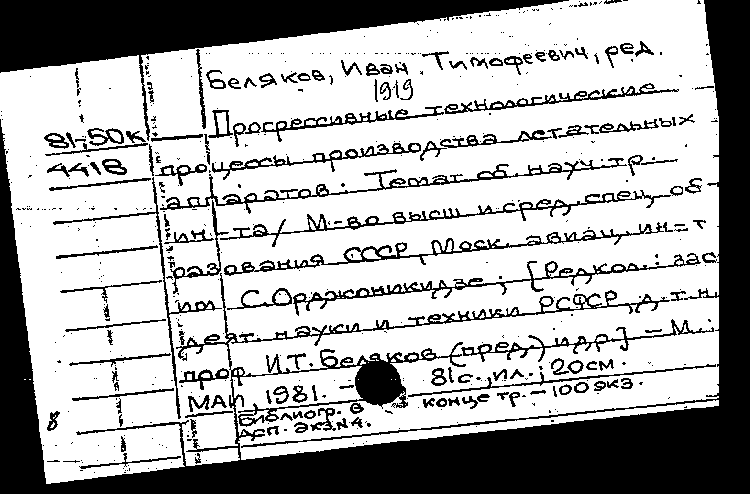 Беляков, Иван Тимофеевич, ред.
1919
81-50к Прогрессивные технологические
4418 процессы производства летательных
аппаратов: Темат. сб. науч. тр.
ин-та / М-во высш. и сред. спец. об-
разования СССР, Моск. авиац. ин-т
им С. Орджоникидзе; [Редкол.: засл.
деят. науки и техники РСФСР, д.т.н.
проф. И.Т. Беляков (пред.) и др.] - М.:
МАИ, 1981. - 81с., ил.; 20см.
Библиогр. в конце тр. - 100 экз.
8 Деп. экз. №4.